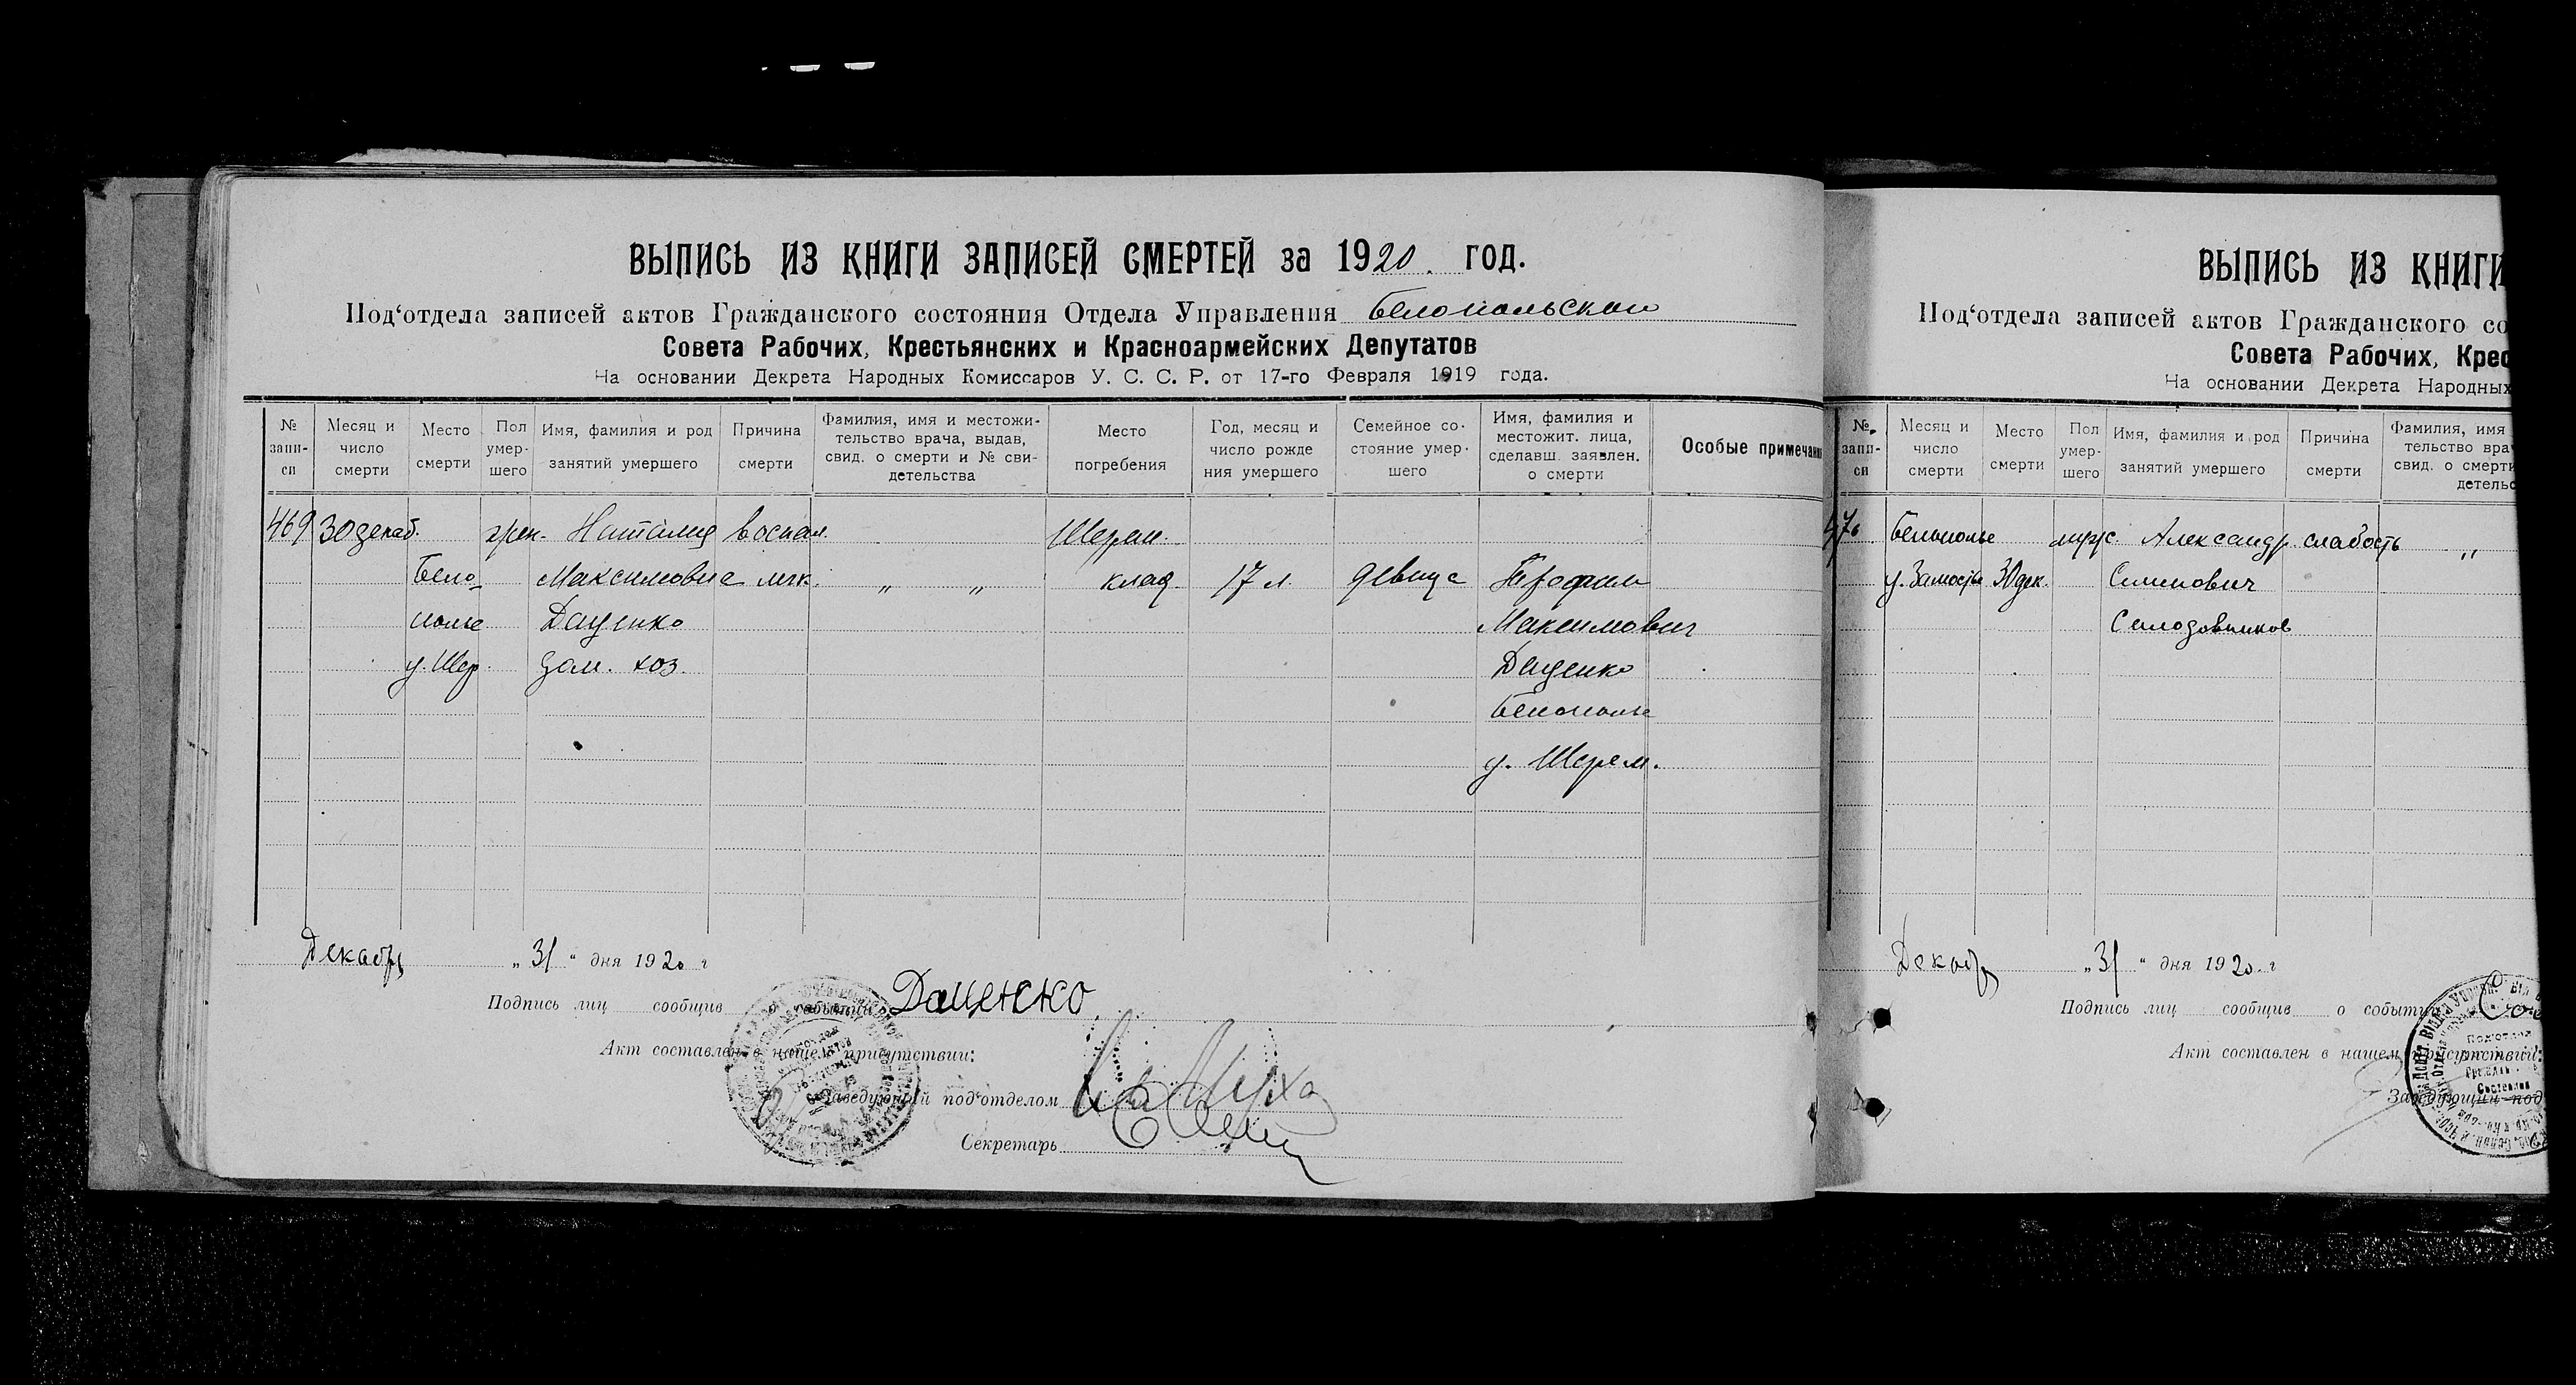 ВЫПИСЬ ИЗ КНИГИ ЗАПИСЕЙ СМЕРТЕЙ за 1920. год.
Под‘отдела записей актов Гражданского состояния Отдела Управления Белопольскаго
Совета Рабочих, Крестьянских и Красноармейских Депутатов
На основании Декрета Народных Комиссаров У. С. С. Р. от 17-го Февраля 1919 года.
№ запи-си
Месяц и число смерти
Место смерти
Пол умер-шего
Имя, фамилия и род занятий умершего
Причина смерти
Фамилия, имя и местожи-тельство врача, выдав, свид. о смерти и № сви-детельства
Место погребения
Год, месяц и число рожде ния умершего
Семейное со-стояние умер-шего
Имя, фамилия и местожит. лица, сделавш. заявлен. о смерти
Особые примечани
469 30 декаб. жен. Наталия воспал. Шерем.
Бело- Максимовна легк. „ „ клад. 17 л. девица Трофим
полье Даценко Максимович
у. Шер. дом. хоз. Даценко
Белополье
у. Шерем.
Декабря „31“ дня 1920 г
Подпись лиц сообщив о событии Даценко
Акт составлен в нашем присутствии:
Заведующий под‘отделом
Секретарь
ВЫПИСЬ ИЗ КНИГИ
Под‘отдела записей актов Гражданского со
Совета Рабочих, Крес
На основании Декрета Народных
№ запи-си
Месяц и число смерти
Место смерти
Пол умер-шего
Имя, фамилия и род занятий умершего
Причина смерти
Фамилия, имя тельство вра свид. о смерти детельс
470 Белополье муж. Александр слабость „
у. Замостье 30 дек. Семенович
Солодовников
Декабря „31“ дня 1920 г
Подпись лиц сообщив о событии
Акт составлен в нашем присутствии:
Заведующий под